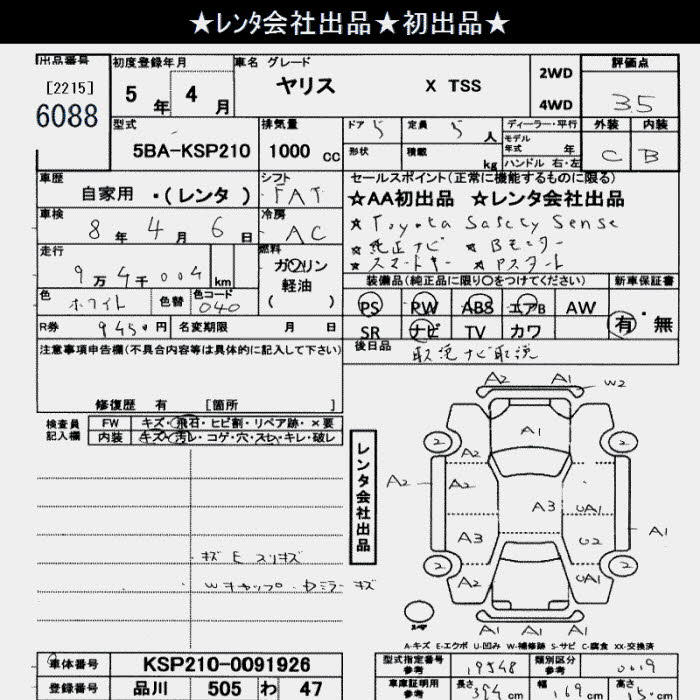 ★レンタ会社出品★初出品★
出品番号 初度登録年月 車名 グレード 評価点
[2215]
6088
5 年 4 月
ヤリス X TSS
2WD
4WD
3.5
型式 排気量 ドア 5 定員 5 人 ディーラー・平行 外装 内装
5BA-KSP210 1000 cc
形状 積載 kg
モデル年式 年
ハンドル 右・左
C B
車歴 シフト セールスポイント(正常に機能するものに限る)
自家用 ・(レンタ) FAT
★AA初出品 ★レンタ会社出品
車検 冷房
8 年 4 月 6 日 AC
★ Toyota Safety Sense
★ 純正ナビ ★ Bモニター
★ スマートキー ★ Pスタート
走行 燃料
9 万 4 千 004 km
ガソリン
軽油
( )
装備品(純正品に限り○をつけてください) 新車保証書
PS PW ABS エアB AW
SR ナビ TV カワ
有・無
色 ホワイト 色替 色コード 040
R券 9450 円 名変期限 月 日
後日品 取説 ナビ取説
注意事項申告欄(不具合内容等は具体的に記入して下さい)
修復歴 有 [箇所 ]
検査員記入欄
FW キズ・飛石・ヒビ割・リペア跡・×要
内装 キズ・汚レ・コゲ・穴・スレ・キレ・破レ
レンタ会社出品
・キズ E スリキズ
Wキャップ・Dミラーキズ
A2 A1 W2
A1
2 2
A2 A2
A3 UA1
A3 U2 A1
2 2
A2 UA1
A1 A1 A1
A-キズ E-エクボ U-凹み W-補修跡 S-サビ C-腐食 XX-交換済
車体番号 KSP210-0091926
登録番号 品川 505 わ 47
型式指定番号参考 19548 類別区分参考 0019
車庫証明用参考 長さ 394 cm 幅 169 cm 高さ 15 cm